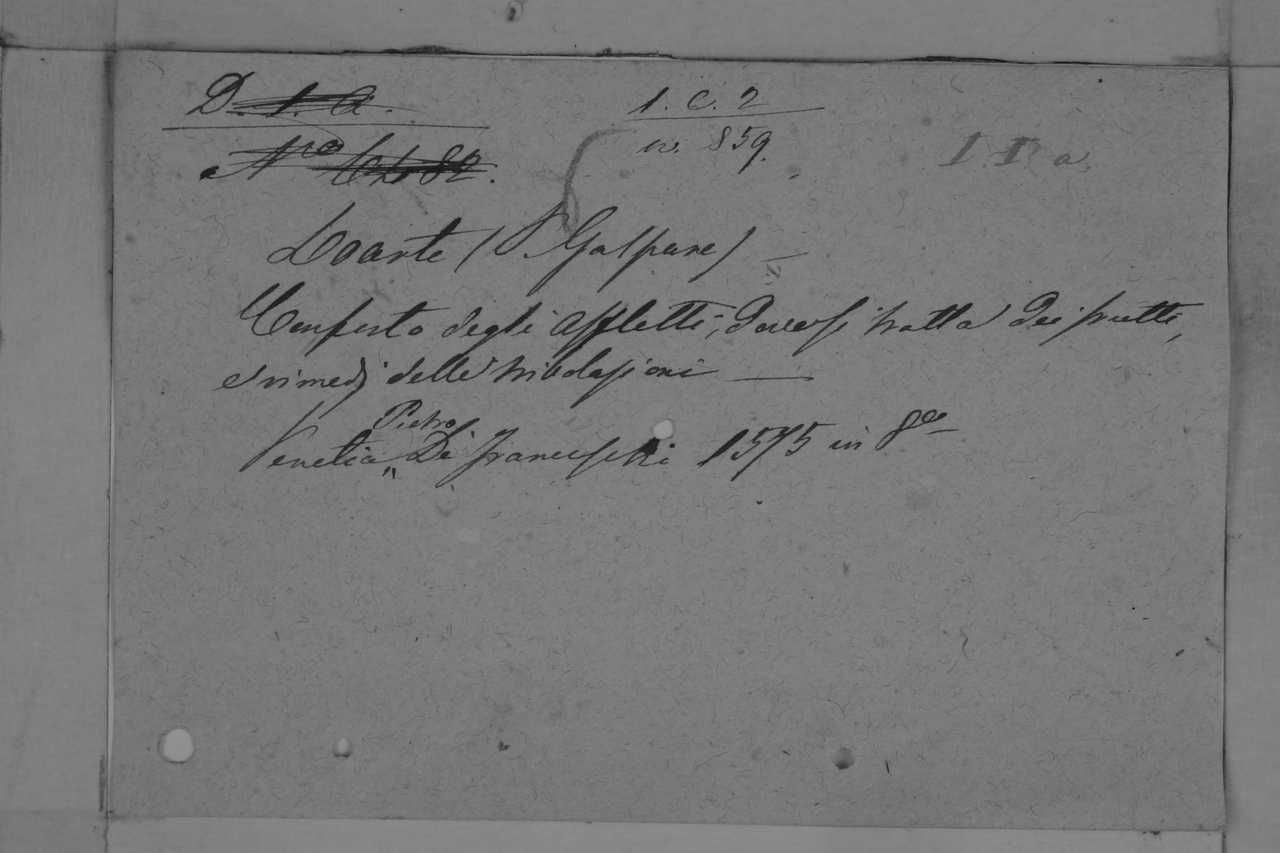 D. 1. a.
1. C. 2
n. 859.
I I a
Nro 82.
Loarte (P. Gaspare)
Conforto degli afflitti, dove si tratta dei frutti,
e rimedj delle tribolazioni
Pietro
Venetia De franceschi 1575 in 8o